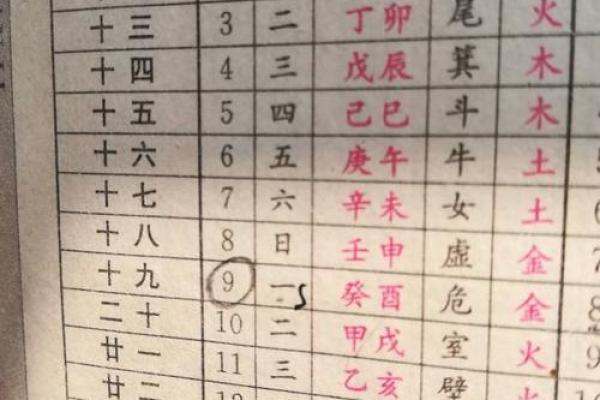 十三 3 二 丁卯 尾 火
十四 4 三 戊辰 箕 木
十五 5 四 己巳 斗 木
十六 6 五 庚午 牛 土
十七 7 六 辛未 女 土
十八 8 日 壬申 虚 金
十九 9 一 癸酉 危 金
二十 10 二 甲戌 室 火
廿一 11 三 乙亥 壁 火
廿二